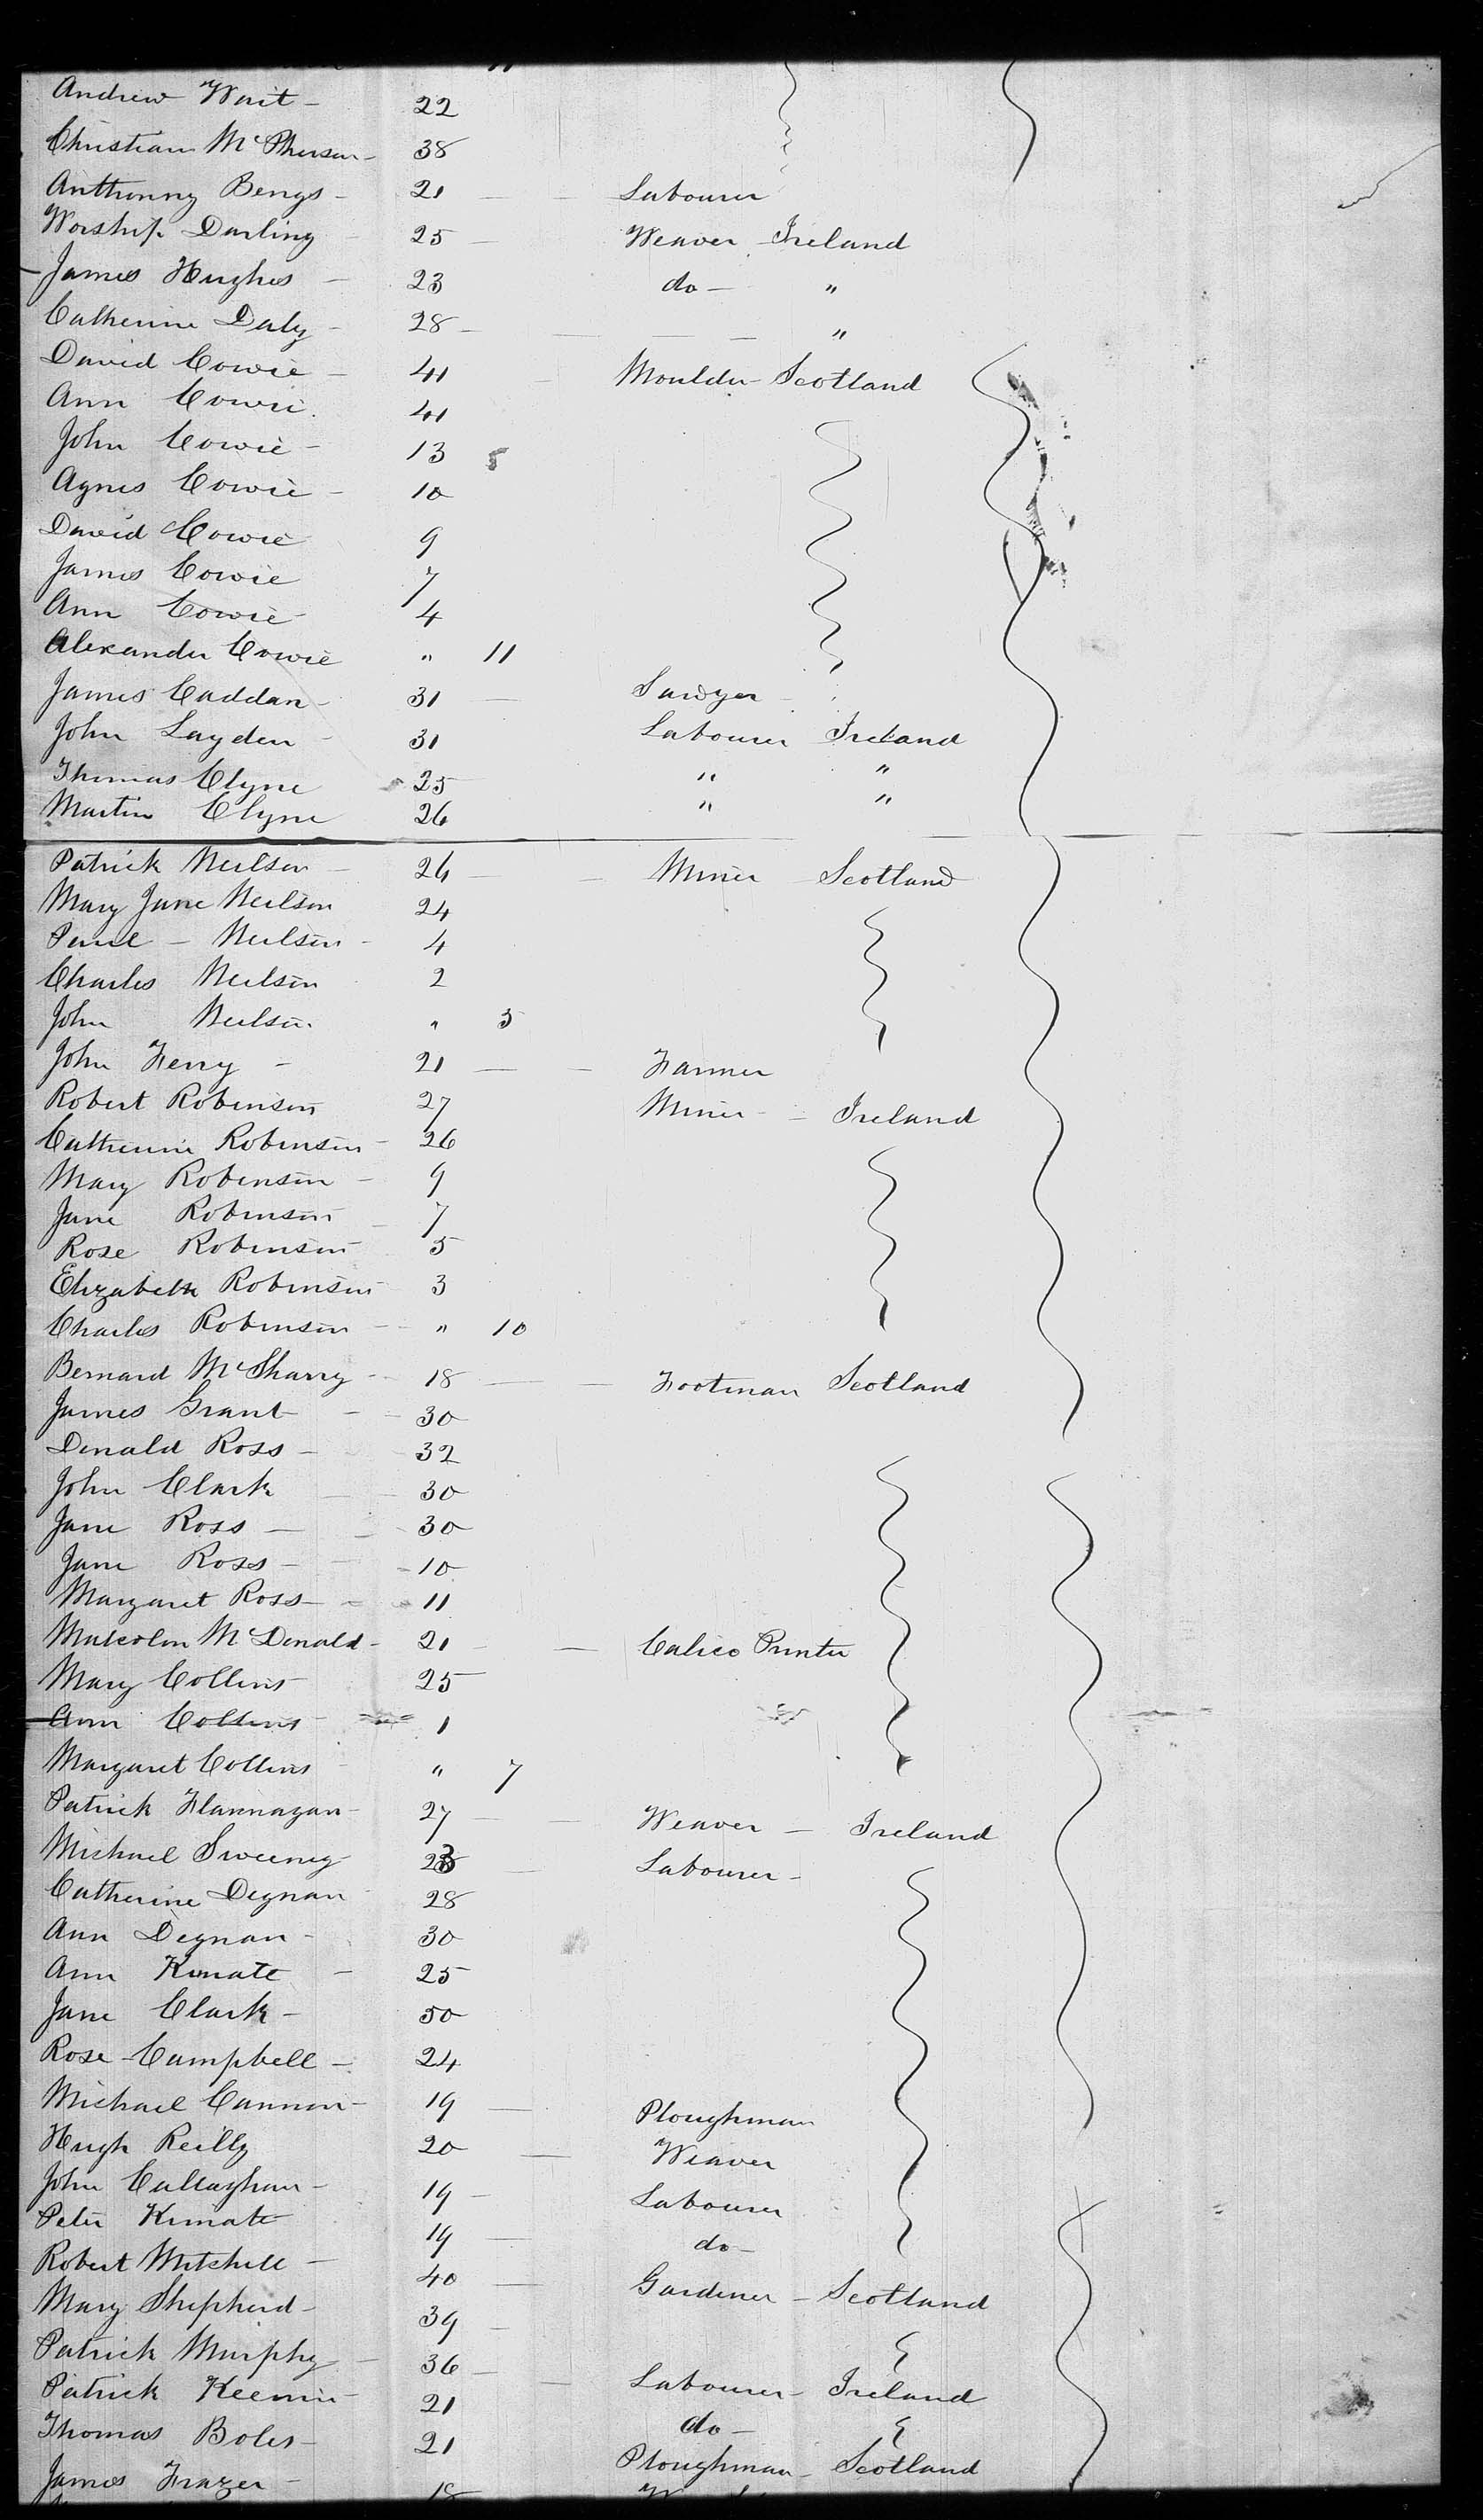 Andrew Wait - 22
Christian McPherson - 38
Anthonny Bengs - 21 Labourer
Worship Darling 25 Weaver Ireland
James Hughes - 23 do - "
Catherine Daly - 28 - "
David Cowie - 41 Moulder Scotland
Ann Cowie. 41
John Cowie - 13
Agnes Cowie - 10
David Cowie 9
James Cowie 7
Ann Cowie 4
Alexander Cowie " 11
James Caddan - 31 Sawyer
John Layden - 31 Labourer Ireland
Thomas Clyne 25 " "
Martin Clyne 26 " "
Patrick Neilson 26 Miner Scotland
Mary Jane Neilson 24
Paul - Neilson 4
Charles Neilson 2
John Neilson " 5
John Ferry - 21 Farmer
Robert Robinson 27 Miner - Ireland
Catherine Robinson 26
Mary Robinson 9
Jane Robinson 7
Rose Robinson 5
Elizabeth Robinson 3
Charles Robinson " 10
Bernard McSharry 18 Footman Scotland
James Grant 30
Donald Ross - 32
John Clark 30
Jane Ross - 30
Jane Ross - 10
Margaret Ross - 11
Malcolm McDonald - 21 Calico Printer
Mary Collins 25
Ann Collins 1
Margaret Collins " 7
Patrick Flannagan 27 Weaver - Ireland
Michael Sweeney 23 Labourer -
Catherine Degnan 28
Ann Degnan - 30
Ann Kinate - 25
Jane Clark - 50
Rose Campbell - 24
Michael Cannon - 19 Ploughman
Hugh Reilly 20 Weaver
John Callaghan - 19 Labourer
Peter Kinate 19 do -
Robert Mitchell - 40 Gardener - Scotland
Mary Shepherd - 39
Patrick Murphy 36 Labourer - Ireland
Patrick 21 do -
Thomas Boles - 21 Ploughman - Scotland
James Frazer - 18